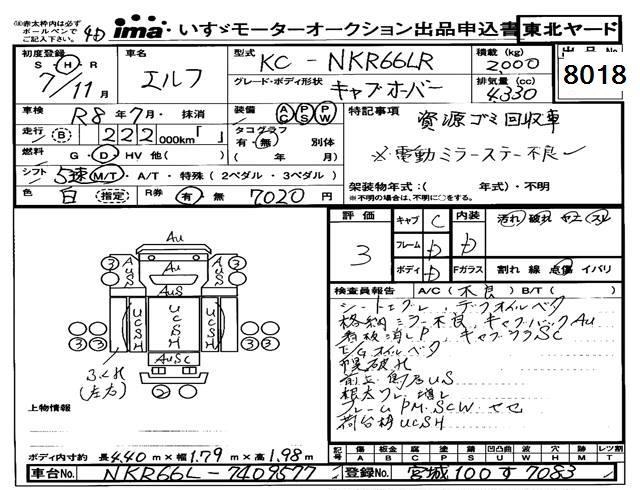 (注)赤太枠内は必ずボールペンでご記入ください
4D ima いすゞモーターオークション出品申込書 東北ヤード
初度登録 車名 型式 KC-NKR66LR 積載 (kg) 2000 出品No.
S・H・R 7/11月 エルフ グレード・ボディ形状 キャブオーバー 排気量 (cc) 4330 8018
車検 R8年7月・抹消 装備 AC PS PW 特記事項 資源ゴミ回収車
走行 B 222,000km「 」 タコグラフ 有・無 別体
※電動ミラーステー不良
燃料 G・D・HV 他( ) ( 年 月)
シフト 5速 M/T・A/T・特殊(2ペダル・3ペダル) 架装物年式:( 年式)・不明
色 白 (指定) R券 有・無 7020円 ※不明の場合は、不明に○をする。
評価 3 キャブ C 内装 汚れ 破れ ヤニ スレ
フレーム D
ボディ D Fガラス 割れ 線 点傷 イバリ
検査員報告 A/C(不良) B/T( )
デフオイルベタ
格納ミラー不良 キャブバックAu
看板消しP.
E/Gオイルベタ
幌破れ
根太フレ増し
フレームPM.SCW.サセ
荷台枠UCSH
Au
Au
AUS
AUS
AUS
UCSH
UCSH
UCSH
AUSC
3 3 3 3
2
ふくれ
(左右)
上物情報
ボディ内寸約 長4.40m×幅1.79m×高1.98m
記号 傷 板金 腐 塗 錆 凹凸曲 波 穴 外 補 レツ割
A B C P S U W X H M T
車台No. NKR66L-7409577 登録No. 宮城100す7083